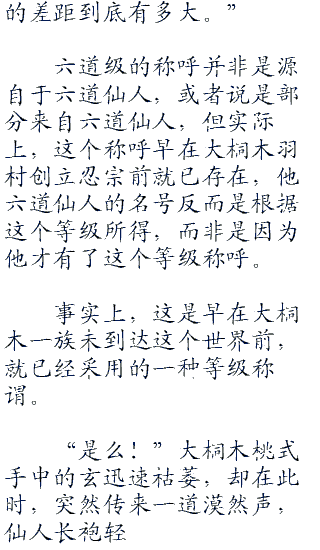 的差距到底有多大。”
六道级的称呼并非是源
自于六道仙人，或者说是部
分来自六道仙人，但实际
上，这个称呼早在大桐木羽
村创立忍宗前就已存在，他
六道仙人的名号反而是根据
这个等级所得，而非是因为
他才有了这个等级称呼。
事实上，这是早在大桐
木一族未到达这个世界前，
就已经采用的一种等级称
谓。
“是么！”大桐木桃式
手中的玄迅速祜萎，却在此
时，突然传来一道漠然声，
仙人长袍轻